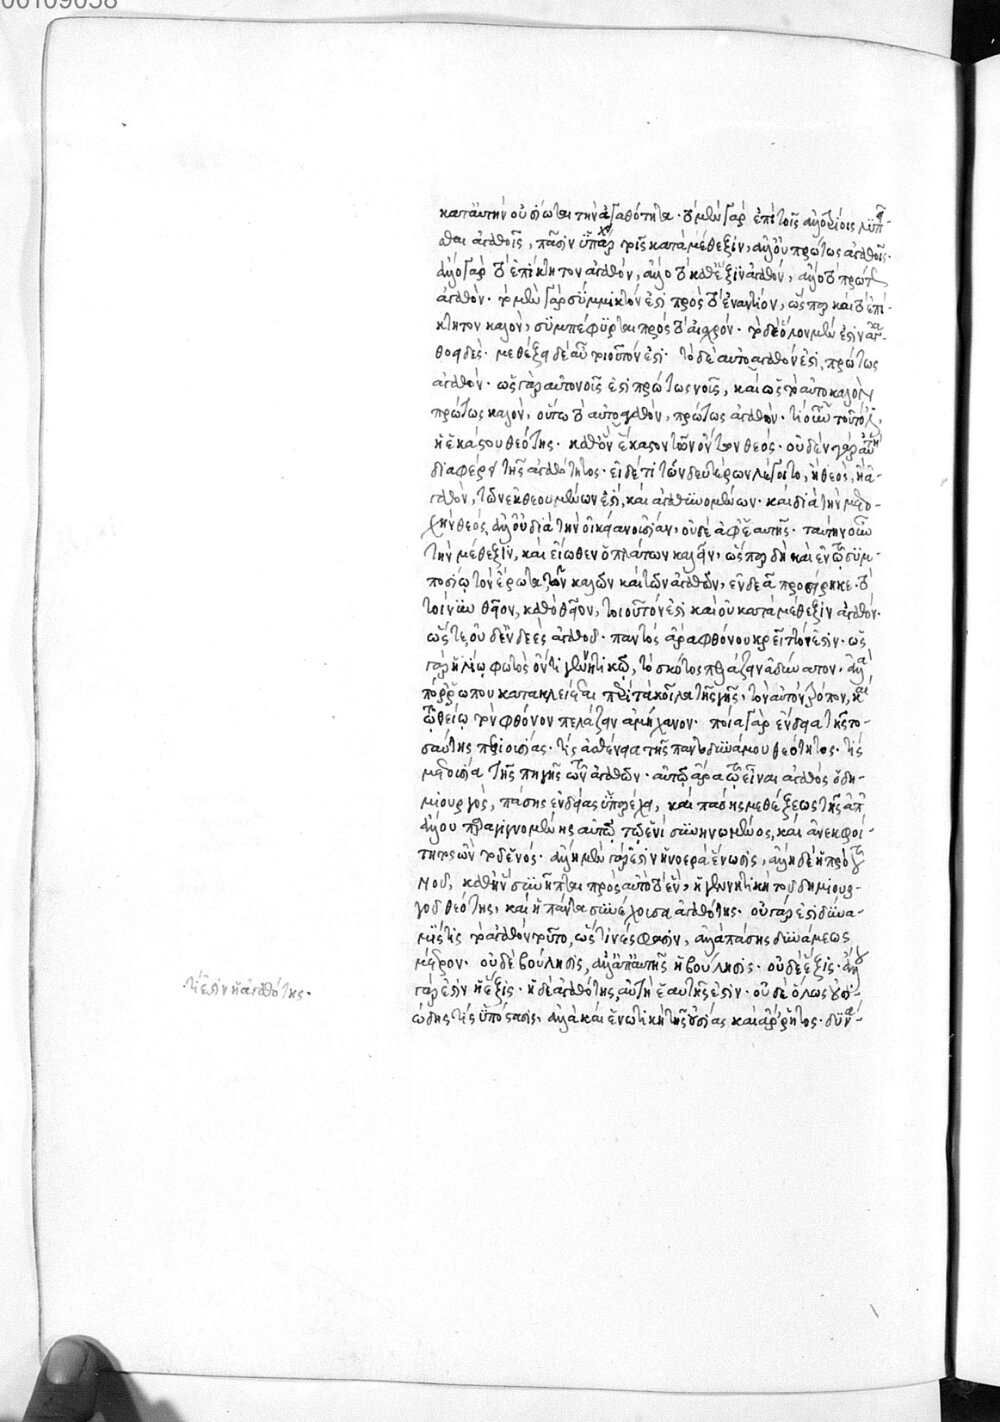 00109058
κατ' αὐτὴν οὐσίωται τὴν ἀγαθότητα. τὸ μὲν γὰρ ἐπὶ τοῖς ἀλλοτρίοις λυπεῖ-
σθαι ἀγαθοῖς, πᾶσιν ὑπάρχει τοῖς κατὰ μέθεξιν, ἀλλ' οὐ πρώτως ἀγαθοῖς.
ἄλλο γὰρ τὸ ἐπίκτητον ἀγαθὸν, ἄλλο τὸ καθ' ἕξιν ἀγαθὸν, ἄλλο τὸ πρώτως
ἀγαθὸν. τὸ μὲν γὰρ σύμμικτόν ἐστι πρὸς τὸ ἐναντίον, ὥσπερ καὶ τὸ ἐπί-
κτητον καλὸν, συμπέφυρται πρὸς τὸ αἰσχρόν. τὸ δὲ ὅλον μέν ἐστιν ἀγα-
θοειδές. μεθέξει δὲ αὖ τοιοῦτον ἐστι. τὸ δὲ αὐτοαγαθόν ἐστι πρώτως
ἀγαθὸν. ὡς γὰρ αὐτονοῦς ἐστι πρώτως νοῦς, καὶ ὡς τὸ αὐτοκαλὸν
πρώτως καλὸν, οὕτω τὸ αὐτοαγαθὸν, πρώτως ἀγαθὸν. τί οὖν τοῦτό ἐστιν,
ἢ ἑκάστου θεότης. καθ' ὃν ἕκαστον τῶν ὄντων θεός. οὐδὲν γὰρ αὕτη
διαφέρει τῆς ἀγαθότητος. εἰ δέ τι τῶν δευτέρων λέγοιτο, ἢ θεὸς, ἢ ἀ-
γαθὸν, τῶν ἐκθεουμένων ἐστὶ, καὶ ἀγαθυνομένων. καὶ διὰ τὴν μετο-
χὴν θεὸς, ἀλλ' οὐ διὰ τὴν οἰκείαν οὐσίαν, οὐδὲ ἀφ' ἑαυτῆς. ταύτην οὖν
τὴν μέθεξιν, καὶ εἴωθεν ὁ πλάτων καλεῖν, ὥσπερ δὴ καὶ ἐν τῷ συμ-
ποσίῳ τὸν ἔρωτα τῶν καλῶν καὶ τῶν ἀγαθῶν, ἐνδεᾶ προσείρηκε. τὸ
τοίνυν θεῖον, καθὸ θεῖον, τοιοῦτόν ἐστι καὶ οὐ κατὰ μέθεξιν ἀγαθόν.
ὥστε, οὐδὲν ἐνδεὲς ἀγαθοῦ. παντὸς ἄρα φθόνου κρεῖττόν ἐστιν. ὡς
γὰρ ἡλίῳ φωτὸς ὄντι γεννητικῷ, τὸ σκότος πελάζειν ἀδύνατον. ἀλλὰ
πόρρω που κατακλείεται περὶ τὰ κοῖλα τῆς γῆς, τὸν αὐτὸν τρόπον, καὶ
τῷ θείῳ τὸν φθόνον πελάζειν ἀμήχανον. ποία γὰρ ἔνδεια τῆς το-
σαύτης περιουσίας. τίς ἀσθένεια τῆς παντοδυνάμου θεότητος. τίς
μετουσία τῆς πηγῆς τῶν ἀγαθῶν. αὐτῷ ἄρα τῷ εἶναι ἀγαθὸς ὁ δη-
μιουργὸς, πάσης ἐνδείας ὑπερέχει, καὶ πάσης μεθέξεως τῆς ἀπ'
ἄλλου παραγιγνομένης αὐτῷ τῷ ἑνὶ συνηνωμένος, καὶ ἀνεκφοί-
τητος ὢν τοῦ ἑνός. ἄλλη μὲν γάρ ἐστιν ἡ νοερὰ ἕνωσις, ἄλλη δὲ ἡ πρὸ τοῦ
νοῦ, καθ' ἣν συνῆπται πρὸς αὐτὸ τὸ ἓν, ἡ γεννητικὴ τοῦ δημιουρ-
γοῦ θεότης, καὶ ἡ πάντα συνέχουσα ἀγαθότης. οὐ γάρ ἐστι δύνα-
μίς τις τὸ ἀγαθὸν τοῦτο, ὥς τινές φασιν, ἀλλὰ πάσης δυνάμεως
μέτρον. οὐδὲ βούλησις, ἀλλ' ἀπ' αὐτῆς ἡ βούλησις. οὐδὲ ἕξις. ἄλλου
γάρ ἐστιν ἡ ἕξις. ἡ δὲ ἀγαθότης, αὐτὴ ἑαυτῆς ἐστιν. οὐδὲ ὅλως οὐσι-
ώδης τίς ὑπόστασις, ἀλλὰ καὶ ἑνωτικὴ τῆς οὐσίας καὶ ἄρρητος. δύνα-
τί ἐστιν ἡ ἀγαθότης.